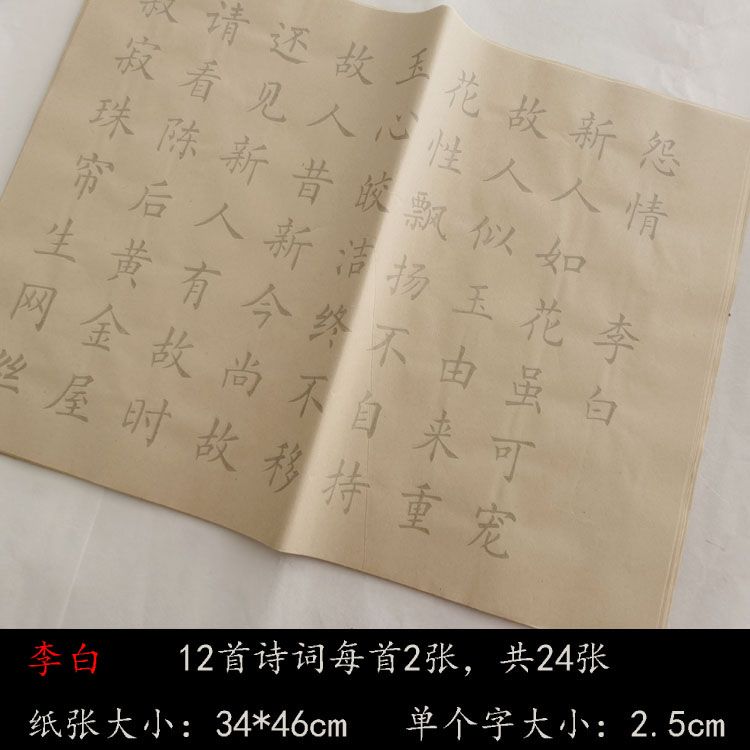 怨情 李白
新人如花虽可宠
故人似玉由来重
花性飘扬不自持
玉心皎洁终不移
故人昔新今尚故
还见新人有故时
请看陈后黄金屋
寂寂珠帘生网丝
李白 12首诗词每首2张，共24张
纸张大小：34*46cm 单个字大小：2.5cm